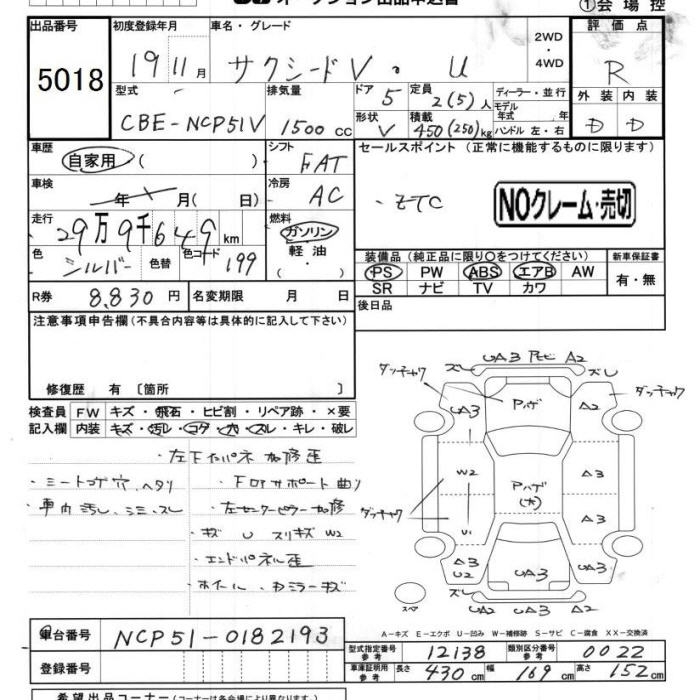 オークション出品申込書
①会場控
出品番号 5018
初度登録年月 19 11月
車名・グレード サクシードV・U
2WD・4WD
評価点 R
外装 D 内装 D
型式 CBE-NCP51V
排気量 1500cc
ドア 5 定員 2(5)人
形状 V 積載 450(250)kg
ディーラー・並行
モデル年式 年
ハンドル 左・右
車歴 自家用 ( )
シフト FAT
セールスポイント (正常に機能するものに限ります)
・ETC
NOクレーム・売切
車検 年 月( 日)
冷房 AC
走行 29万9千649km
燃料 ガソリン・軽油・( )
色 シルバー 色替 色コード 199
装備品 (純正品に限り○をつけてください)
PS PW ABS エアB AW
SR ナビ TV カワ
新車保証書 有・無
R券 8,830円
名変期限 月 日
後日品
注意事項申告欄(不具合内容等は具体的に記入して下さい)
修復歴 有 〔箇所 〕
検査員記入欄
FW キズ・飛石・ヒビ割・リペア跡・×要
内装 キズ・汚レ・コゲ・穴・スレ・キレ・破レ
・左下インパネ加修歪
・ミートコゲ穴、ヘタリ
・FロアサポートOR曲り
・車内汚レ、シミ、スレ
・左センターピラー加修
・キズ U スリキズ W2
・エンドパネル歪
・ホイール・ドアミラーキズ
ダッチャク
ズレ UA3 モビ A2 ズレ
ダッチャク
UA3 Pハゲ A2
W2 Pハゲ(大) A3
ダッチャク
U1 A3
A3 U2 UA3 UA3
スペア
ズレ UA3
A-キズ E-エクボ U-凹み W-補修跡 S-サビ C-腐食 XX-交換済
車台番号 NCP51-0182193
登録番号
型式指定番号 参考 12138 類別区分番号 参考 0022
車庫証明用 参考 長さ 430cm 幅 169cm 高さ 152cm
希望出品コーナー(コーナーは各会場により異なります)